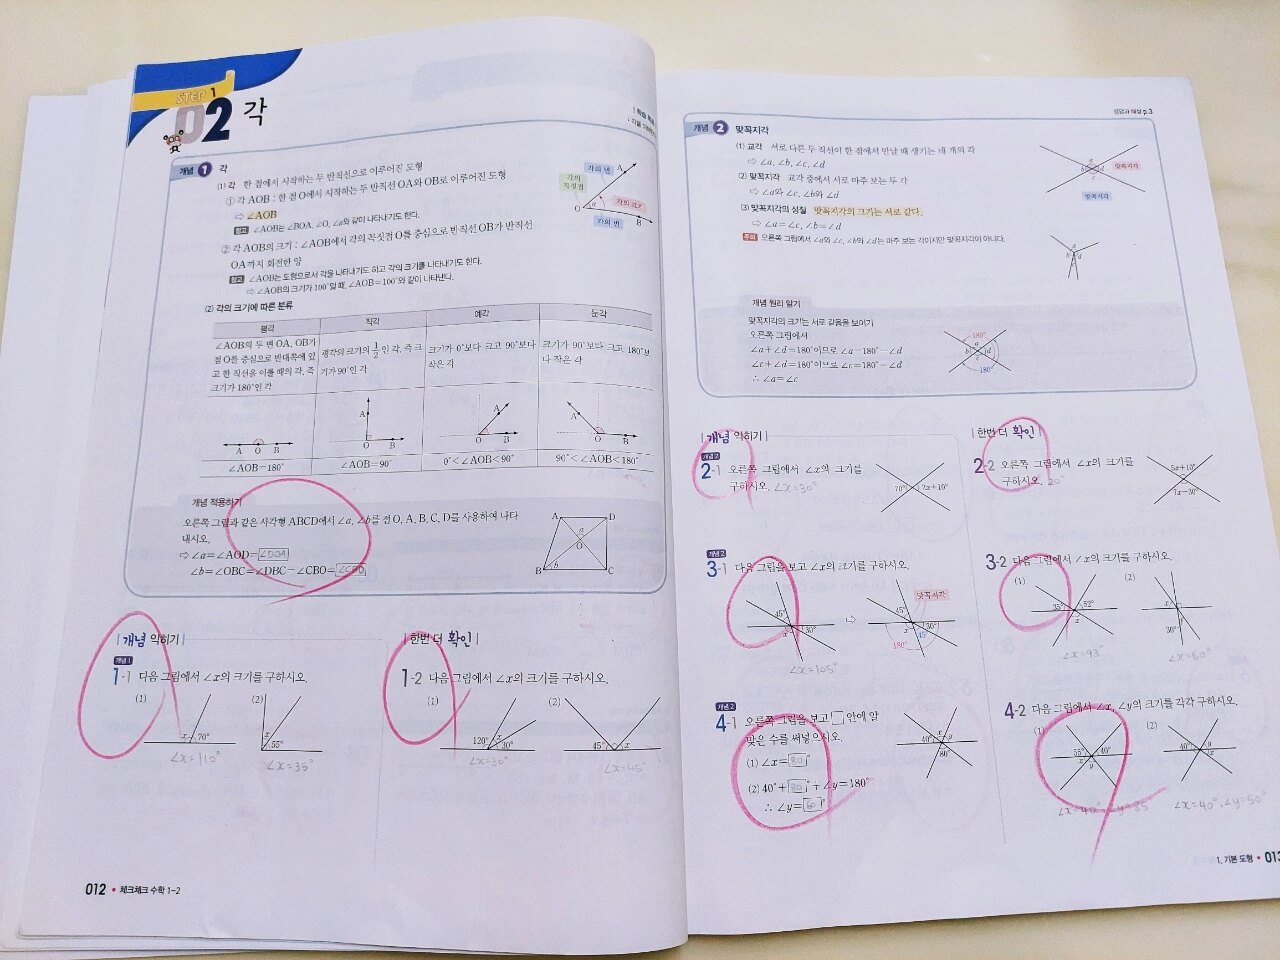 STEP 1
02 각
개념 1 각
(1) 각 한 점에서 시작하는 두 반직선으로 이루어진 도형
① 각 AOB : 한 점 O에서 시작하는 두 반직선 OA와 OB로 이루어진 도형
⇨ ∠AOB
참고 ∠AOB는 ∠BOA, ∠O, ∠a와 같이 나타내기도 한다.
② 각 AOB의 크기 : ∠AOB에서 각의 꼭짓점 O를 중심으로 반직선 OB가 반직선
OA까지 회전한 양
참고 ∠AOB는 도형으로서 각을 나타내기도 하고 각의 크기를 나타내기도 한다.
⇨ ∠AOB의 크기가 100°일 때, ∠AOB=100°와 같이 나타낸다.
각의 변 A
각의 꼭짓점
O a 각의 크기
각의 변 B
(2) 각의 크기에 따른 분류
평각 직각 예각 둔각
∠AOB의 두 변 OA, OB가
점 O를 중심으로 반대쪽에 있
고 한 직선을 이룰 때의 각, 즉
크기가 180°인 각
평각의 크기의 1/2인 각, 즉 크
기가 90°인 각
크기가 0°보다 크고 90°보다
작은 각
크기가 90°보다 크고 180°보
다 작은 각
A O B
A O B
A O B
A O B
∠AOB=180° ∠AOB=90° 0°<∠AOB<90° 90°<∠AOB<180°
개념 적용하기
오른쪽 그림과 같은 사각형 ABCD에서 ∠a, ∠b를 점 O, A, B, C, D를 사용하여 나타
내시오.
⇨ ∠a=∠AOD=∠DOA
∠b=∠OBC=∠DBC=∠CBO=∠CBD
A D
a
O
b
B C
개념 익히기
개념 1
1-1 다음 그림에서 ∠x의 크기를 구하시오.
(1) x 70°
∠x=110°
(2) x 55°
∠x=35°
한번 더 확인
1-2 다음 그림에서 ∠x의 크기를 구하시오.
(1) 120° x 30°
∠x=30°
(2) 45° x
∠x=45°
012 • 체크체크 수학 1-2
정답과 해설 p.3
개념 2 맞꼭지각
(1) 교각 서로 다른 두 직선이 한 점에서 만날 때 생기는 네 개의 각
⇨ ∠a, ∠b, ∠c, ∠d
(2) 맞꼭지각 교각 중에서 서로 마주 보는 두 각
⇨ ∠a와 ∠c, ∠b와 ∠d
(3) 맞꼭지각의 성질 맞꼭지각의 크기는 서로 같다.
⇨ ∠a=∠c, ∠b=∠d
주의 오른쪽 그림에서 ∠a와 ∠c, ∠b와 ∠d는 마주 보는 각이지만 맞꼭지각이 아니다.
맞꼭지각
맞꼭지각
개념 원리 알기
맞꼭지각의 크기는 서로 같음을 보이기
오른쪽 그림에서
∠a+∠d=180°이므로 ∠a=180°-∠d
∠c+∠d=180°이므로 ∠c=180°-∠d
∴ ∠a=∠c
180°
a
b d
c
180°
개념 익히기
개념 2
2-1 오른쪽 그림에서 ∠x의 크기를
구하시오. ∠x=30°
70° 2x+10°
한번 더 확인
2-2 오른쪽 그림에서 ∠x의 크기를
구하시오. 20°
5x+10°
7x-30°
개념 2
3-1 다음 그림을 보고 ∠x의 크기를 구하시오.
45° x 30°
⇨
맞꼭지각
45° x 30°
45°
180°
∠x=105°
3-2 다음 그림에서 ∠x의 크기를 구하시오.
(1) 35° 52° x
∠x=93°
(2) x 30°
∠x=60°
개념 2
4-1 오른쪽 그림을 보고 □ 안에 알
맞은 수를 써넣으시오.
(1) ∠x=80°
(2) 40°+80°+∠y=180°
∴ ∠y=60°
40° x y 80°
4-2 다음 그림에서 ∠x, ∠y의 크기를 각각 구하시오.
(1) 55° 40° x y
∠x=40°, ∠y=85°
(2) 40° y x
∠x=40°, ∠y=50°
1. 기본 도형 • 013